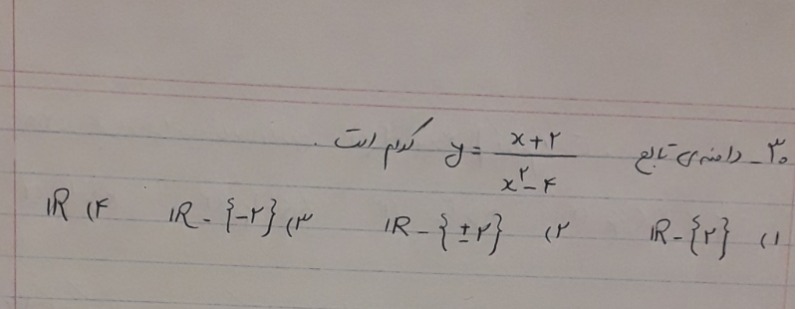 ۳۰ـ دامنه‌ی تابع y = (x+۲)/(x^۲-۴) کدام است.
۱) IR - {۲}  ۲) IR - {±۲}  ۳) IR - {-۲}  ۴) IR